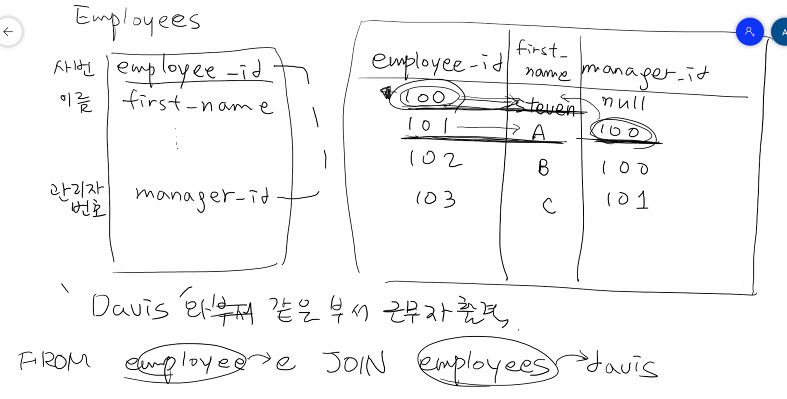 Employees
사번 employee_id
이름 first_name
관리자 번호 manager_id
employee_id first_name manager_id
100 teven null
101 A 100
102 B 100
103 C 101
Davis 와 부서 같은 부서 근무자 출력.
FROM employee → e JOIN employees → davis
A